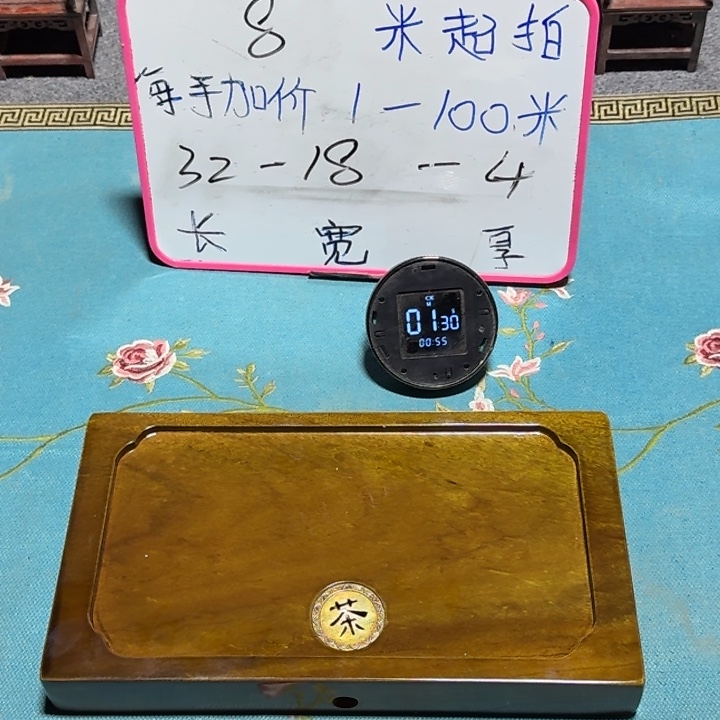 8 米起拍
每手加价 1-100米
32-18--4
长 宽 享
01 30
00:55
茶